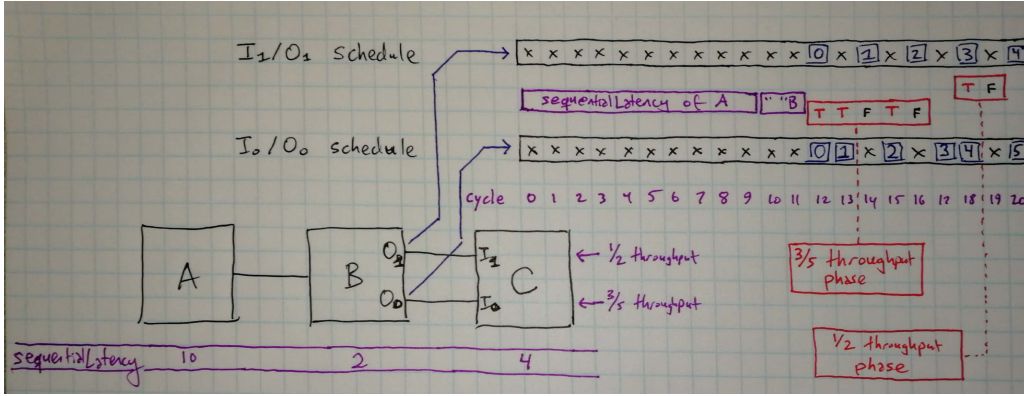 I₁/O₁ schedule x x x x x x x x x x x x 0 x 1 x 2 x 3 x 4
T F
sequentialLatency of A " " B
T T F T F
I₀/O₀ schedule x x x x x x x x x x x x 0 1 x 2 x 3 4 x 5
cycle 0 1 2 3 4 5 6 7 8 9 10 11 12 13 14 15 16 17 18 19 20
A B O₁ I₁ C ← 1/2 throughput
O₀ I₀ ← 3/5 throughput
3/5 throughput
phase
1/2 throughput
phase
sequentialLatency 10 2 4